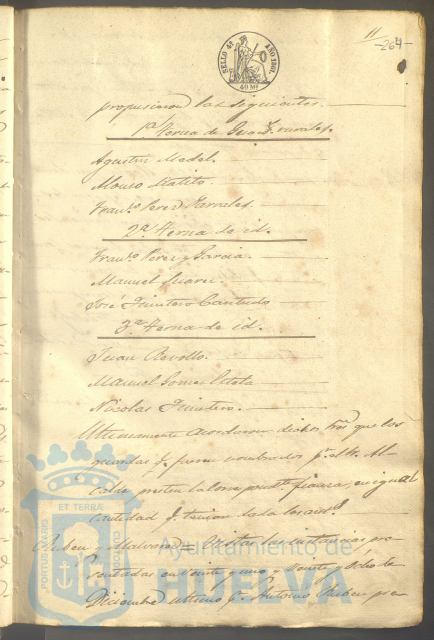 SELLO 4º AÑO 1861.
40 Ms
11
-264-
propusieron las siguientes.
1ª terna de Guardˢ rurales.
Agustin Medel.
Alonso Matito.
Franco Perez Parrales.
2ª terna de id.
Franco Perez y Garcia.
Manuel Suarez.
José Quintero Cantudo
3ª terna de id.
Juan Rebollo.
Manuel Gomez
Nicolas Quintero.
Ultimamente acordaron dichos Sres que los
guardas q. fueren nombrados pr el Sr. Al
calde presten la competente fianza, en igual
cantidad q. tenian
Ruben y = Vistas las instancias, pre
sentadas en veinte y uno y veinte y ocho de
Diciembre ultimo pr Antonio Ruben pre
PORTUS MARIS ET TERRÆ
Ayuntamiento de
HUELVA